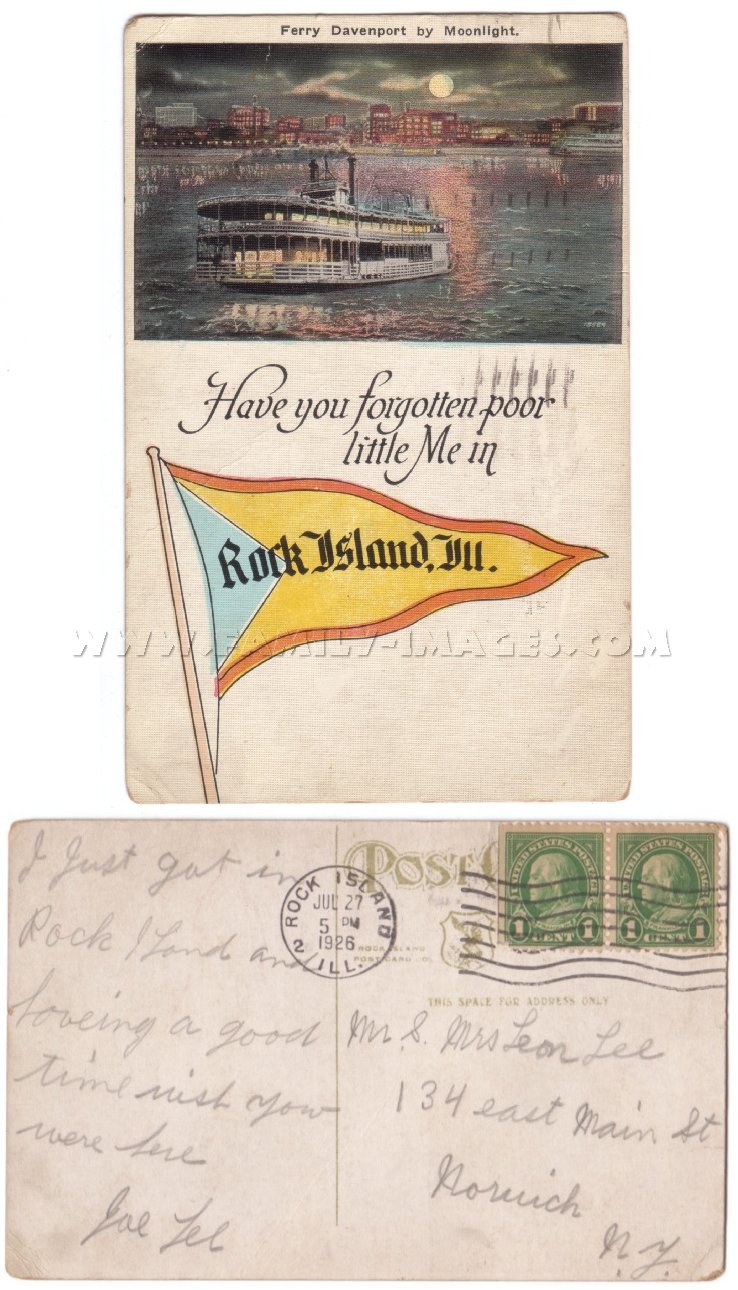 Ferry Davenport by Moonlight.
15524
Have you forgotten poor
little Me in
Rock Island, Ill.
WWW.FAMILY-IMAGES.COM
I Just got in
Rock I Land and
haveing a good
time wish you
were here
Joe Lee
POST
ROCK ISLAND
JUL 27
5 PM
1926
2 ILL.
ROCK ISLAND
POST CARD CO.
UNITED STATES POSTAGE
1 CENT 1
UNITED STATES POSTAGE
1 CENT 1
THIS SPACE FOR ADDRESS ONLY
Mr. & Mrs Leon Lee
134 east Main St
Norwich
N.Y.